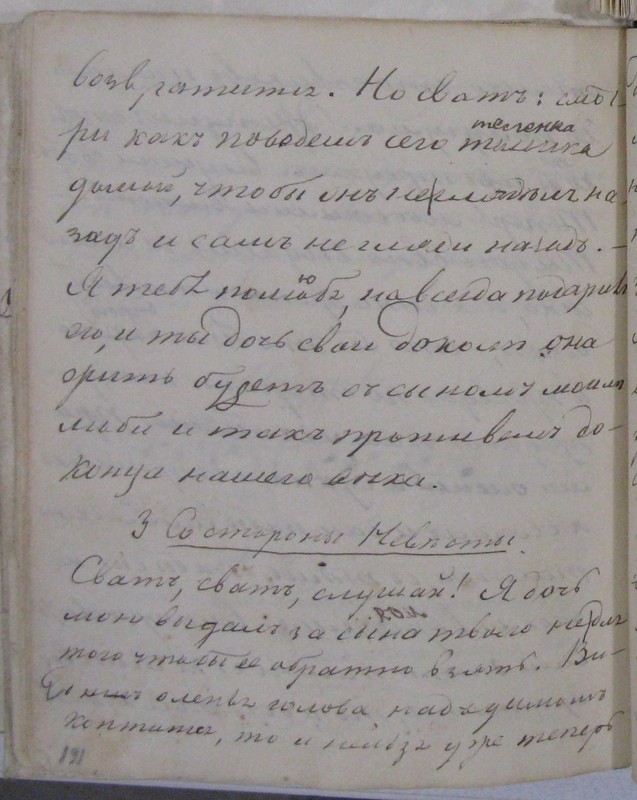 возвратится. Но сватъ: смот-
ри какъ поведешъ сего теленка
домой, чтобы онъ не глядѣлъ на
задъ и самъ не гляди назадъ. –
Я тебѣ полюбѣ, навсегда подарив
го, и ты дочь свои доколѣ она
орить будетъ съ сыномъ моимъ
люби и такъ проживемъ до-
конца нашего вѣка.
3 Со стороны Невѣсты.
Сватъ, сватъ, слушай! Я дочь
мою выдалъ за сына твого не для
того чтобы ее обратно взять.
оленья голова надъ дымомъ
коптится, то и нельзя уже теперь
191